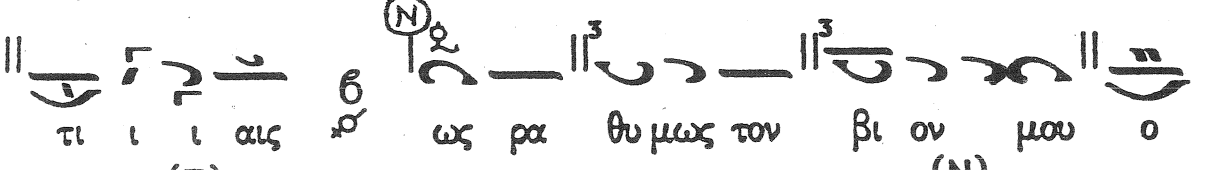 τι ι ι αις ως ρα θυ μως τον βι ον μου ο